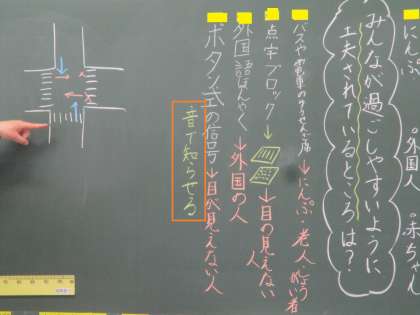 にんぷ 。外国人 。赤ちゃん
みんなが過ごしやすいように
工夫されているところは?
バスや電車のゆうせん席→にんぷ・老人・がい者
点字ブロック→目の見えない人
外国語ほんやく→外国の人
ボタン式の信号→目が見えない人
音で知らせる